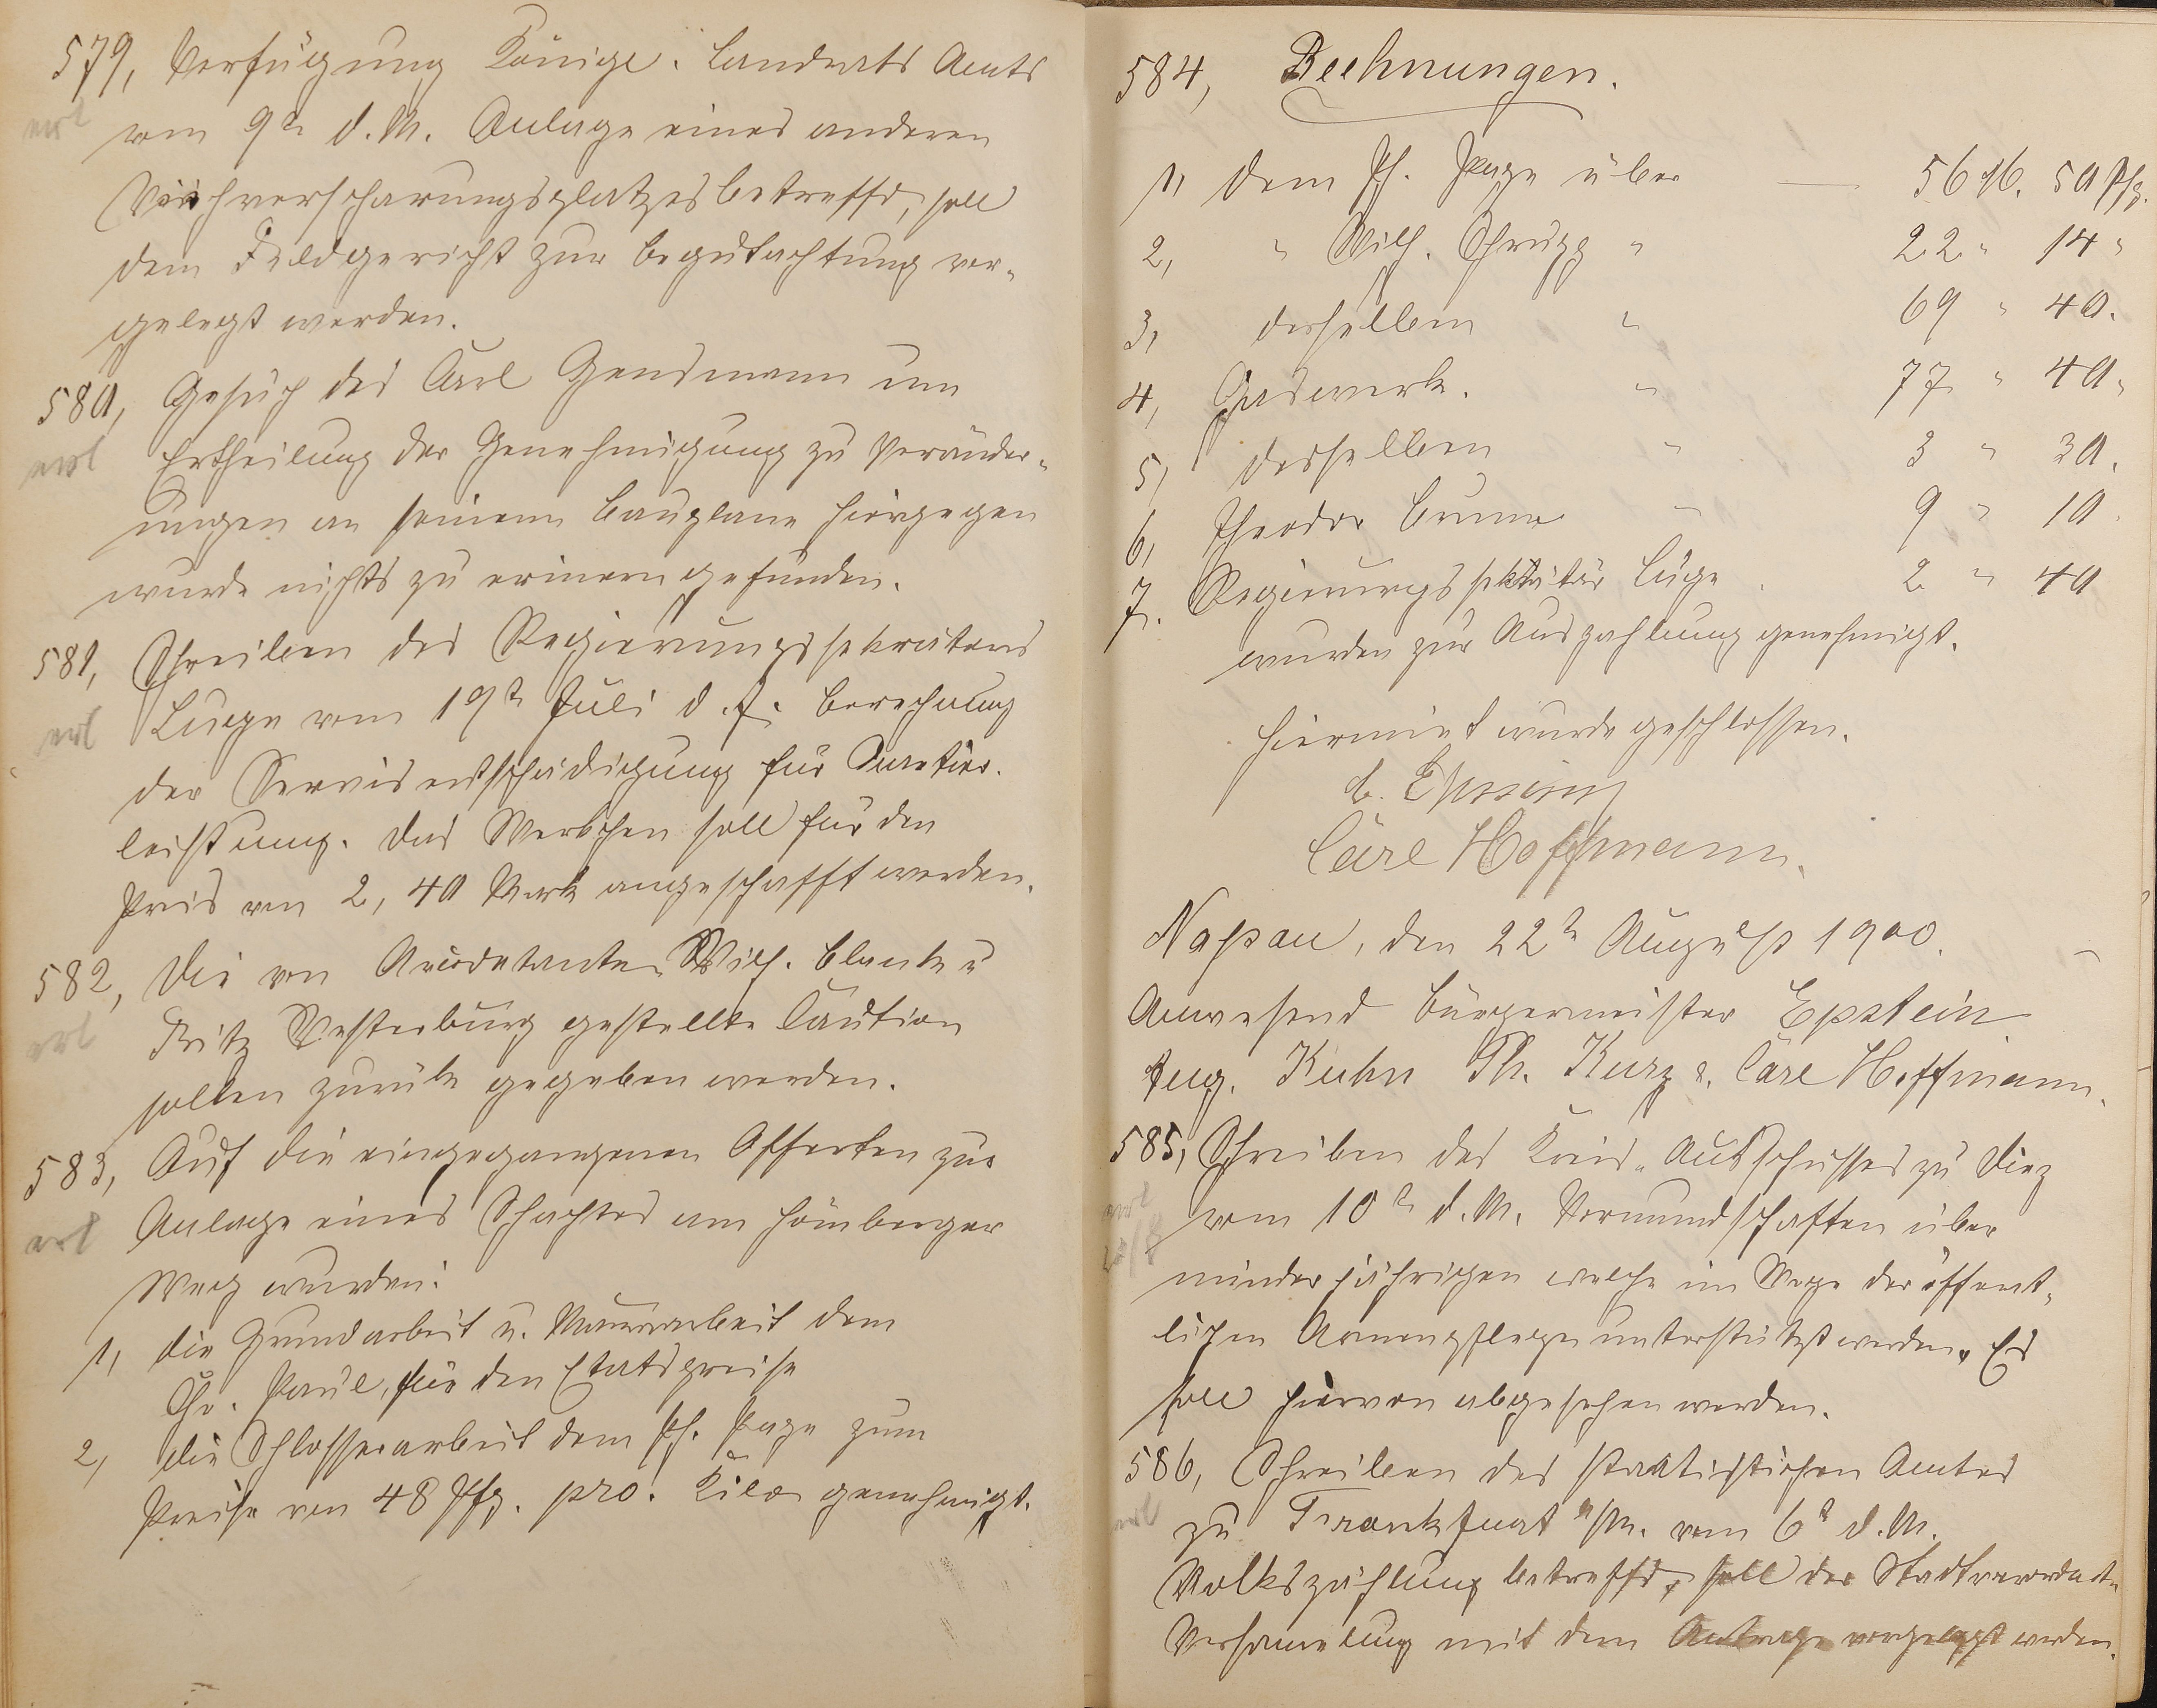 579, Verfügung Königl. Landrats Amts
erl
vom 9ten d. M. Anlage eines anderen
Viehverscharungsplatzes betreffd, soll
dem Feldgericht zur Begutachtung vor-
gelegt werden.
580, Gesuch des Carl um
erl
Ertheilung der Genehmigung zu Veränder-
ungen an seinem Bauplane hiergegen
wurde nichts zu erinern gefunden.
581, Schreiben des Regierungssekretärs
erl
Luege vom 19ten Juli d. J. Berechnung
der Servisentschädigung für Quartier-
leistung. Das Werkchen soll für den
Preis von 2,40 Mark angeschafft werden.
582, Die von Wilh. Blank u
erl
Fritz Westerburg gestellte Caution
sollen zurück gegeben werden.
583, Auf die eingegangenen Offerten zur
erl
Anlage eines Schachtes am Hömberger
Weg wurden:
1, die Grundarbeit u. Maurerarbeit dem
Chr. Paul, für den Etatspreise
2, die Schlosserarbeit dem Ph. zum
Preise von 48 Pfg. pro. Kilo genehmigt.
584, Rechnungen.
1, dem Ph. über — 56 M. 50 Pfg.
2, " Wilh. " 22 " 14 "
3, desselben " 69 " 40.
4, Gaswerk. " 77 " 40 "
5, desselben " 3 " 30.
6, Theodor " 9 " 10.
7. Regierungssekretär Lüge. 2 " 40
wurden zur Auszahlung genehmigt.
Hiermit wurde geschlossen.
Carl Hoffmann.
Nassau, den 22ten August 1900.
Anwesend Bürgermeister Epstein
Aug. Kuhn Ph. Kurz u. Carl Hoffmann.
585, Schreiben des Kreis-Ausschusses zu Diez
erl
vom 10ten d. M. Vormundschaften über
minderjährigen welche im Wege der öffent-
lichen Armenpflege unterstützt werden. Es
soll hiervon abgesehen werden.
586, Schreiben des statistischen Amtes
erl
zu Frankfurt a/M. vom 6ten d. M.
Volkszählung betreffd, soll der Stadtverordnt.
Versammlung mit dem Antrage vorgelegt werden.